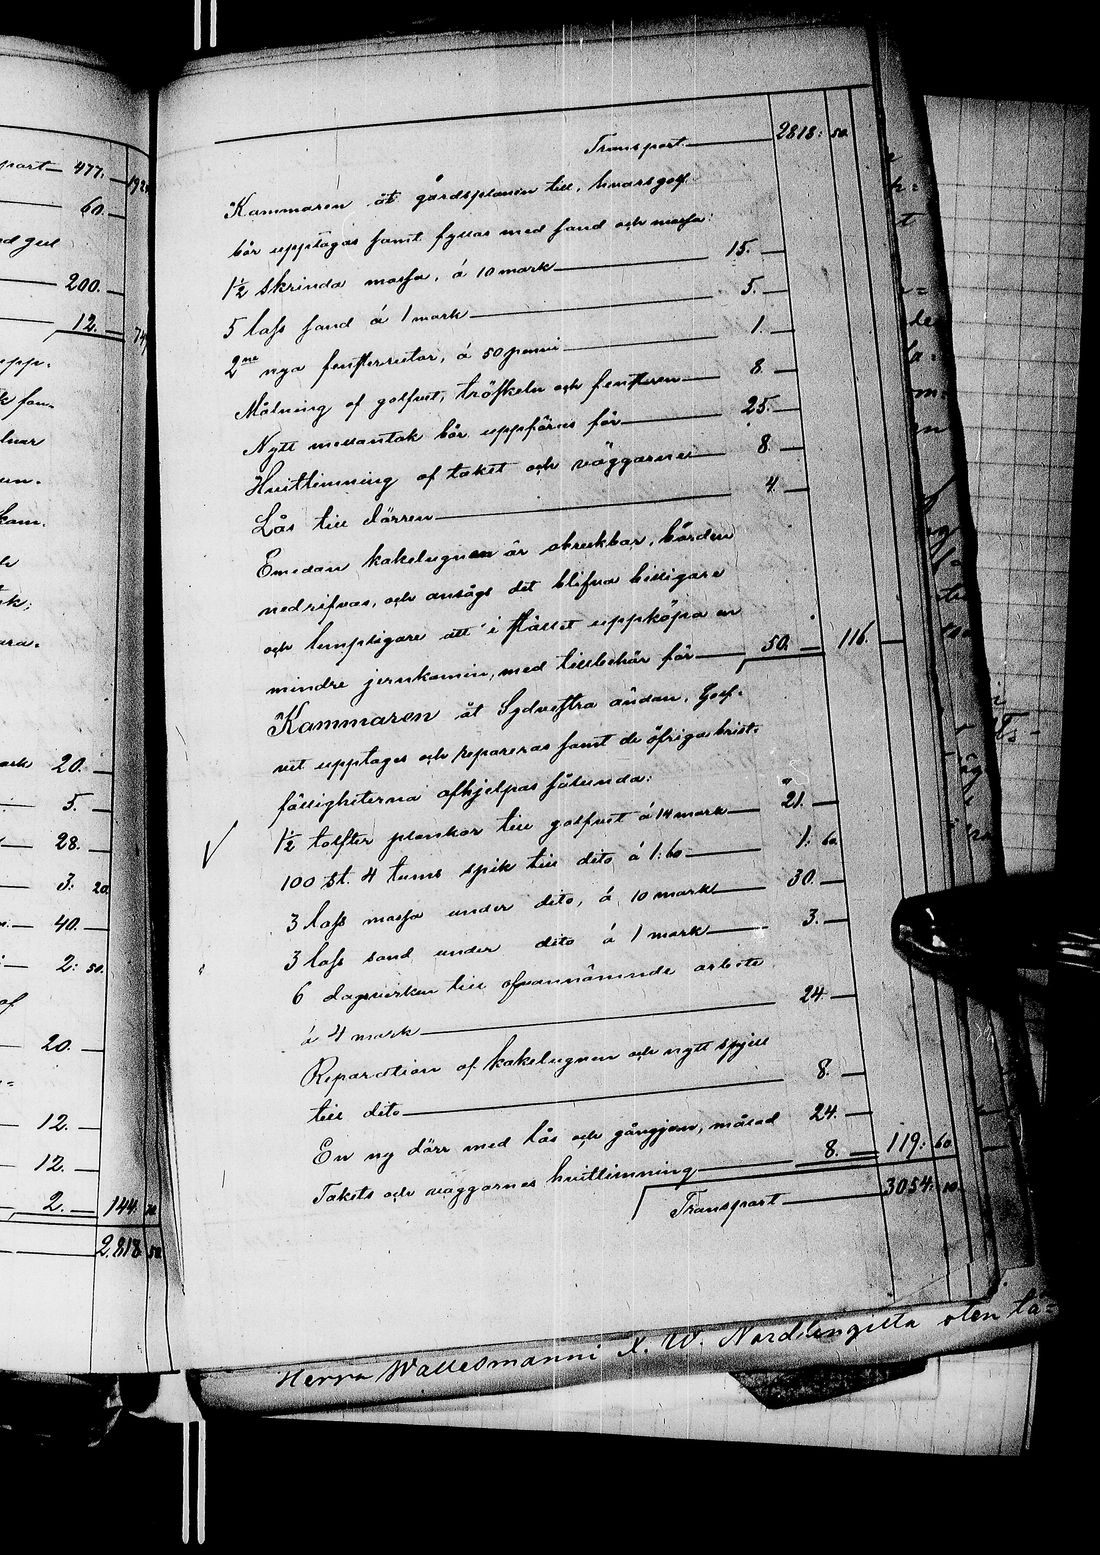 Transport 2818: 50.
Kammaren åt gårdsplanen till, hvars golf
bör upptagas samt fyllas med sand och mossa:
1½ skrinda mossa, á 10 mark 15.
5 lass sand á 1 mark 5.
2ne nya fensterrutor, á 50 penni 1.
Målning af golfvet, tröskeln och fenstren 8.
Nytt mellantak bör uppföras för 25.
Hvitlimning af taket och väggarne 8.
Lås till dörren 4.
Emedan kakelugnen är obrukbar, borden
nedrifvas, och ansågs det blifva billigare
och lämpligare att i stället uppköpa en
mindre jernkamin, med tillbehör för 50. 116.
Kammaren åt Sydvestra ändan, Golf-
vet upptages och repareras samt de öfriga brist-
fälligheterna afhjelpas sålunda:
1½ tolfter plankor till golfvet á 14 mark 21.
100 st. 4 tums spik till dito á 1:60 1: 60.
3 lass mossa under dito, á 10 mark 30.
3 lass sand under dito á 1 mark 3.
6 dagsverken till ofvannämnde arbete
á 4 mark 24.
Reparation af kakelugnen och nytt spjell
till dito 8.
En ny dörr med lås och gångjern, målad 24.
Takets och väggarnes hvitlimning 8. 119: 60.
Transport 3054. 10.
Herra Wallesmanni K. W. Nordlingilta oten lä-
part 477. 192
60.
200.
12. 74
upp-
kam-
mark 20.
5.
28.
3. 20
40.
2: 50.
af
20.
12.
12.
2. 144. 70
2.818 50